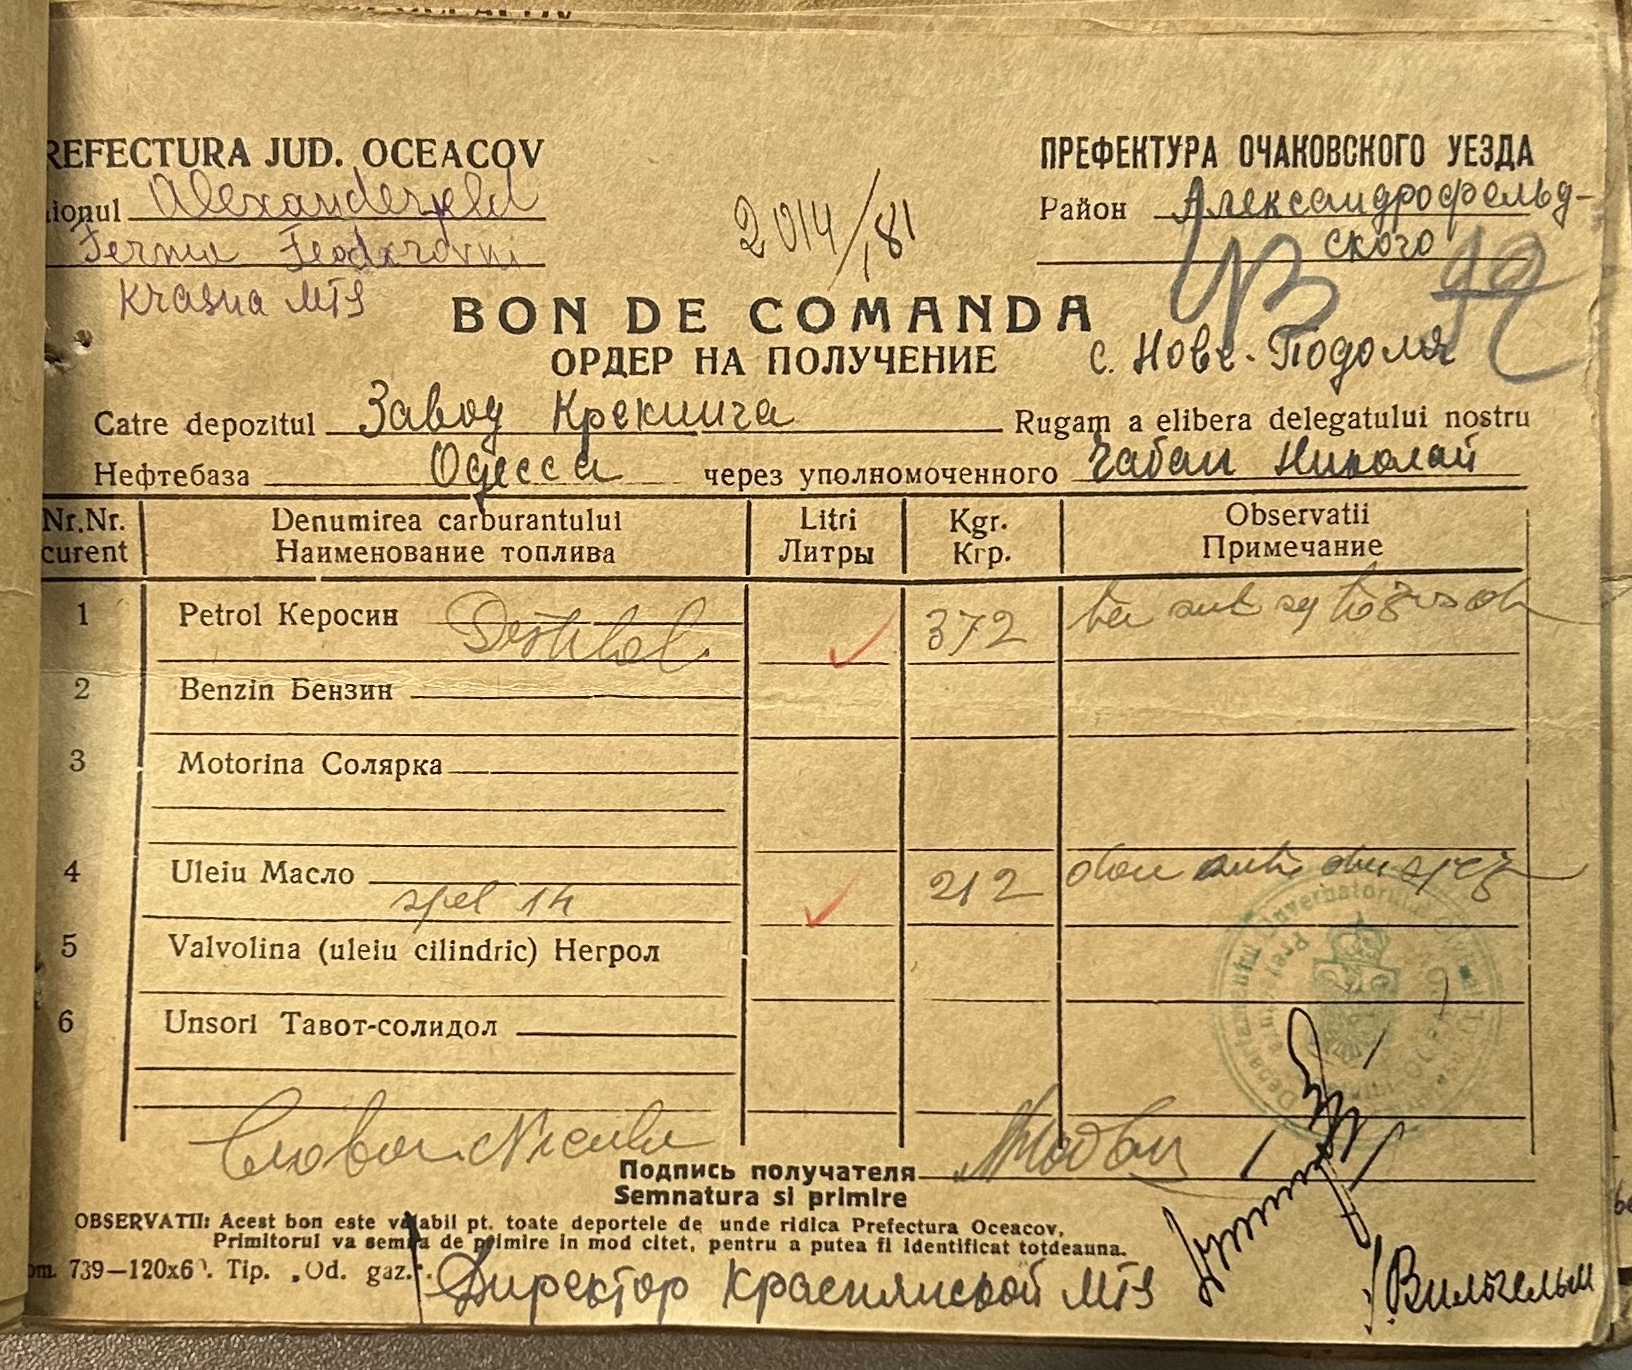 REFECTURA JUD. OCEACOV
ПРЕФЕКТУРА ОЧАКОВСКОГО УЕЗДА
ionul Alexanderfeld
Район Александрофельд-
ского
Ferma Feodorovni
Krasna MTS
BON DE COMANDA
ОРДЕР НА ПОЛУЧЕНИЕ
с. Нове-Подоля
Catre depozitul Завод Крекинга Rugam a elibera delegatului nostru
Нефтебаза Одесса через уполномоченного Чабан Николай
Nr.Nr. Denumirea carburantului Litri Kgr. Observatii
curent Наименование топлива Литры Кгр. Примечание
1 Petrol Керосин 372
2 Benzin Бензин
3 Motorina Солярка
4 Uleiu Масло 212
5 Valvolina (uleiu cilindric) Негрол
6 Unsori Тавот-солидол
Подпись получателя
Semnatura si primire
OBSERVATII: Acest bon este valabil pt. toate deportele de unde ridica Prefectura Oceacov,
Primitorul va semna de primire in mod citet, pentru a putea fi identificat totdeauna.
om. 739—120x6 . Tip. „Od. gaz.".
Директор Краснянской MTS
Вильгельм